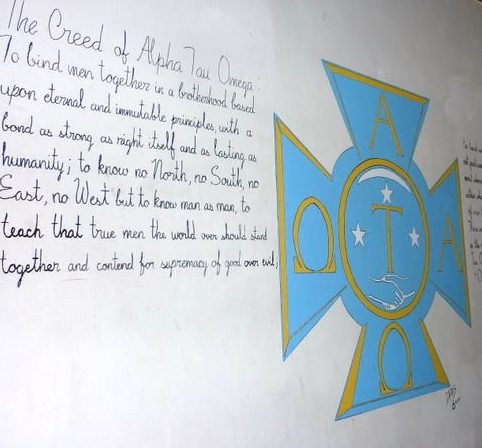 The Creed of Alpha Tau Omega
To bind men together in a brotherhood based
upon eternal and immutable principles, with a
bond as strong as right itself and as lasting as
humanity; to know no North, no South, no
East, no West but to know man as man, to
teach that true men the world over should stand
together and contend for supremacy of good over evil;
A
Ω T A
Ω